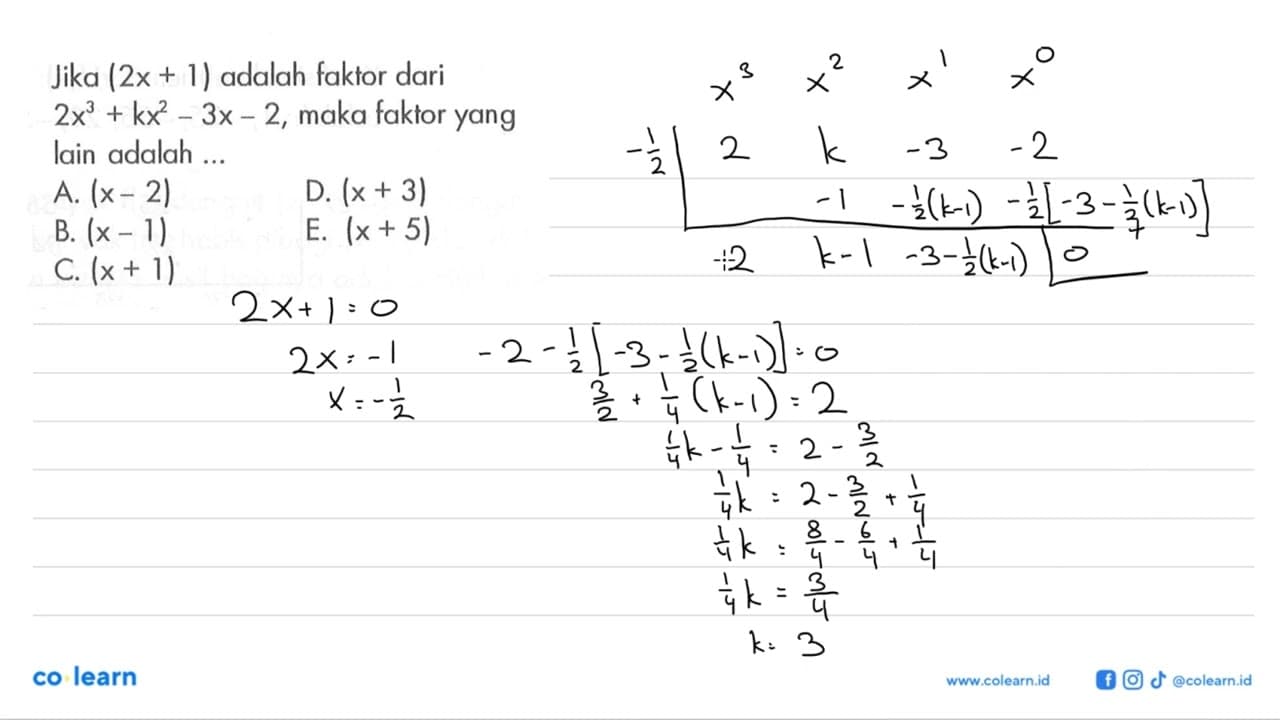 Jika (2x + 1) adalah faktor dari
2x³ + kx² – 3x – 2, maka faktor yang
lain adalah ...
A. (x – 2) D. (x + 3)
B. (x – 1) E. (x + 5)
C. (x + 1)
x³ x² x¹ x⁰
-1/2 | 2 k -3 -2
-1 -1/2(k-1) -1/2[-3-1/2(k-1)]
2 k-1 -3-1/2(k-1) 0
2x+1=0
2x=-1
x=-1/2
-2-1/2[-3-1/2(k-1)]=0
3/2+1/4(k-1)=2
1/4k-1/4=2-3/2
1/4k=2-3/2+1/4
1/4k=8/4-6/4+1/4
1/4k=3/4
k=3
co·learn
www.colearn.id
@colearn.id